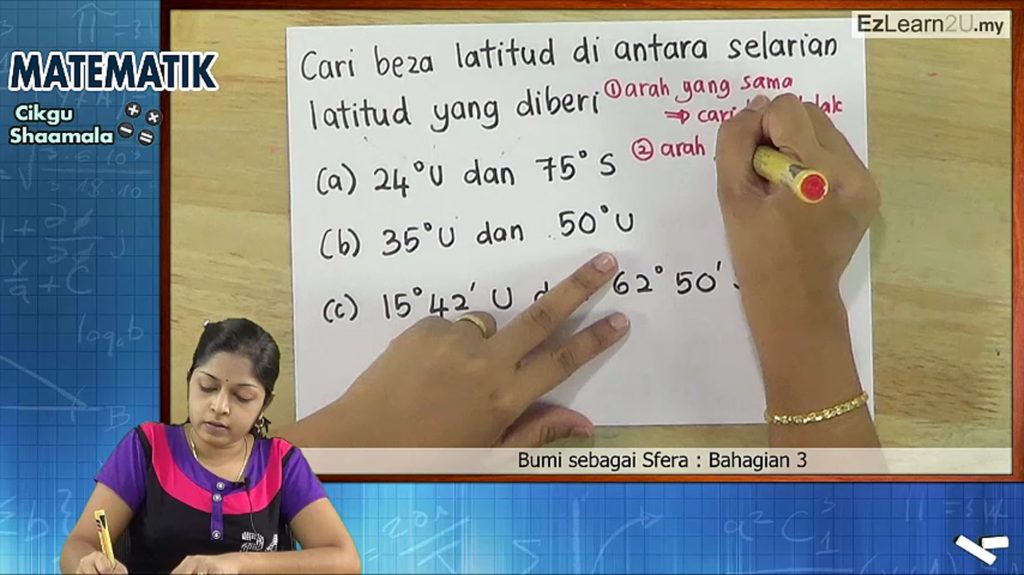 EzLearn2U.my
MATEMATIK
Cikgu
Shaamala
Cari beza latitud di antara selarian
latitud yang diberi
① arah yang sama
⇒ cari
② arah
(a) 24°U dan 75°S
(b) 35°U dan 50°U
(c) 15°42' U 62°50'
Bumi sebagai Sfera : Bahagian 3